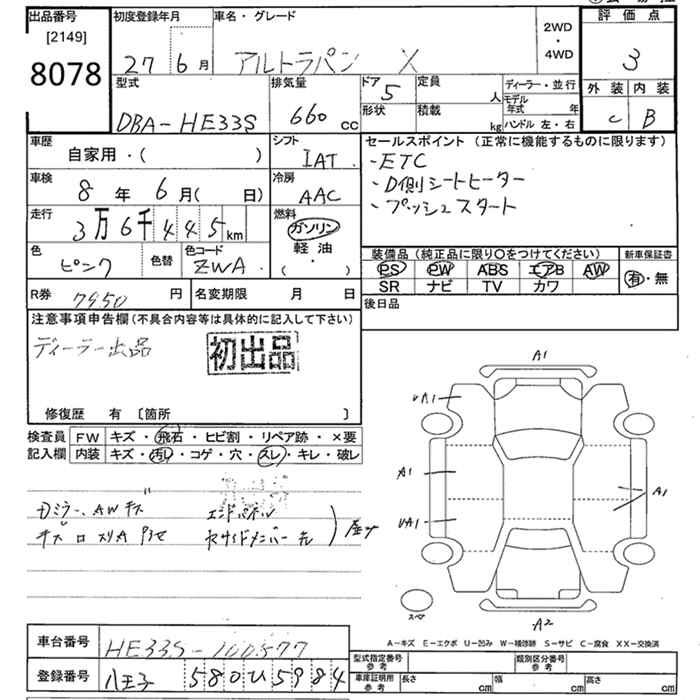 出品番号
[2149]
8078
初度登録年月
27 6月
車名・グレード
アルトラパン X
2WD
・
4WD
評価点
3
外装 内装
C B
型式
DBA-HE33S
排気量
660 cc
ドア 5
形状
定員 人
積載 kg
ディーラー・並行
モデル年式 年
ハンドル 左・右
車歴
自家用・( )
シフト
IAT
セールスポイント (正常に機能するものに限ります)
・ETC
・D側シートヒーター
・プッシュスタート
車検
8年 6月( 日)
冷房
AAC
走行
3万6千445km
燃料
ガソリン
軽油
( ・ )
色
ピンク
色替
色コード
ZWA
装備品(純正品に限り○をつけてください)
PS PW ABS エアB AW
SR ナビ TV カワ
新車保証書
有・無
R券 7450円
名変期限 月 日
後日品
注意事項申告欄(不具合内容等は具体的に記入して下さい)
ディーラー出品
初出品
修復歴 有 [箇所 ]
検査員記入欄
FW キズ・飛石・ヒビ割・リペア跡・×要
内装 キズ・汚レ・コゲ・穴・スレ・キレ・破レ
Dミラー、AWキズ
エンドパネル
A1
UA1
A1
UA1
A1
A2
スペア
A-キズ E-エクボ U-凹み W-補修跡 S-サビ C-腐食 XX-交換済
車台番号
HE33S-100577
登録番号
八王子 580 い 5984
型式指定番号 参考
類別区分番号 参考
車庫証明用 参考
長さ cm
幅 cm
高さ cm